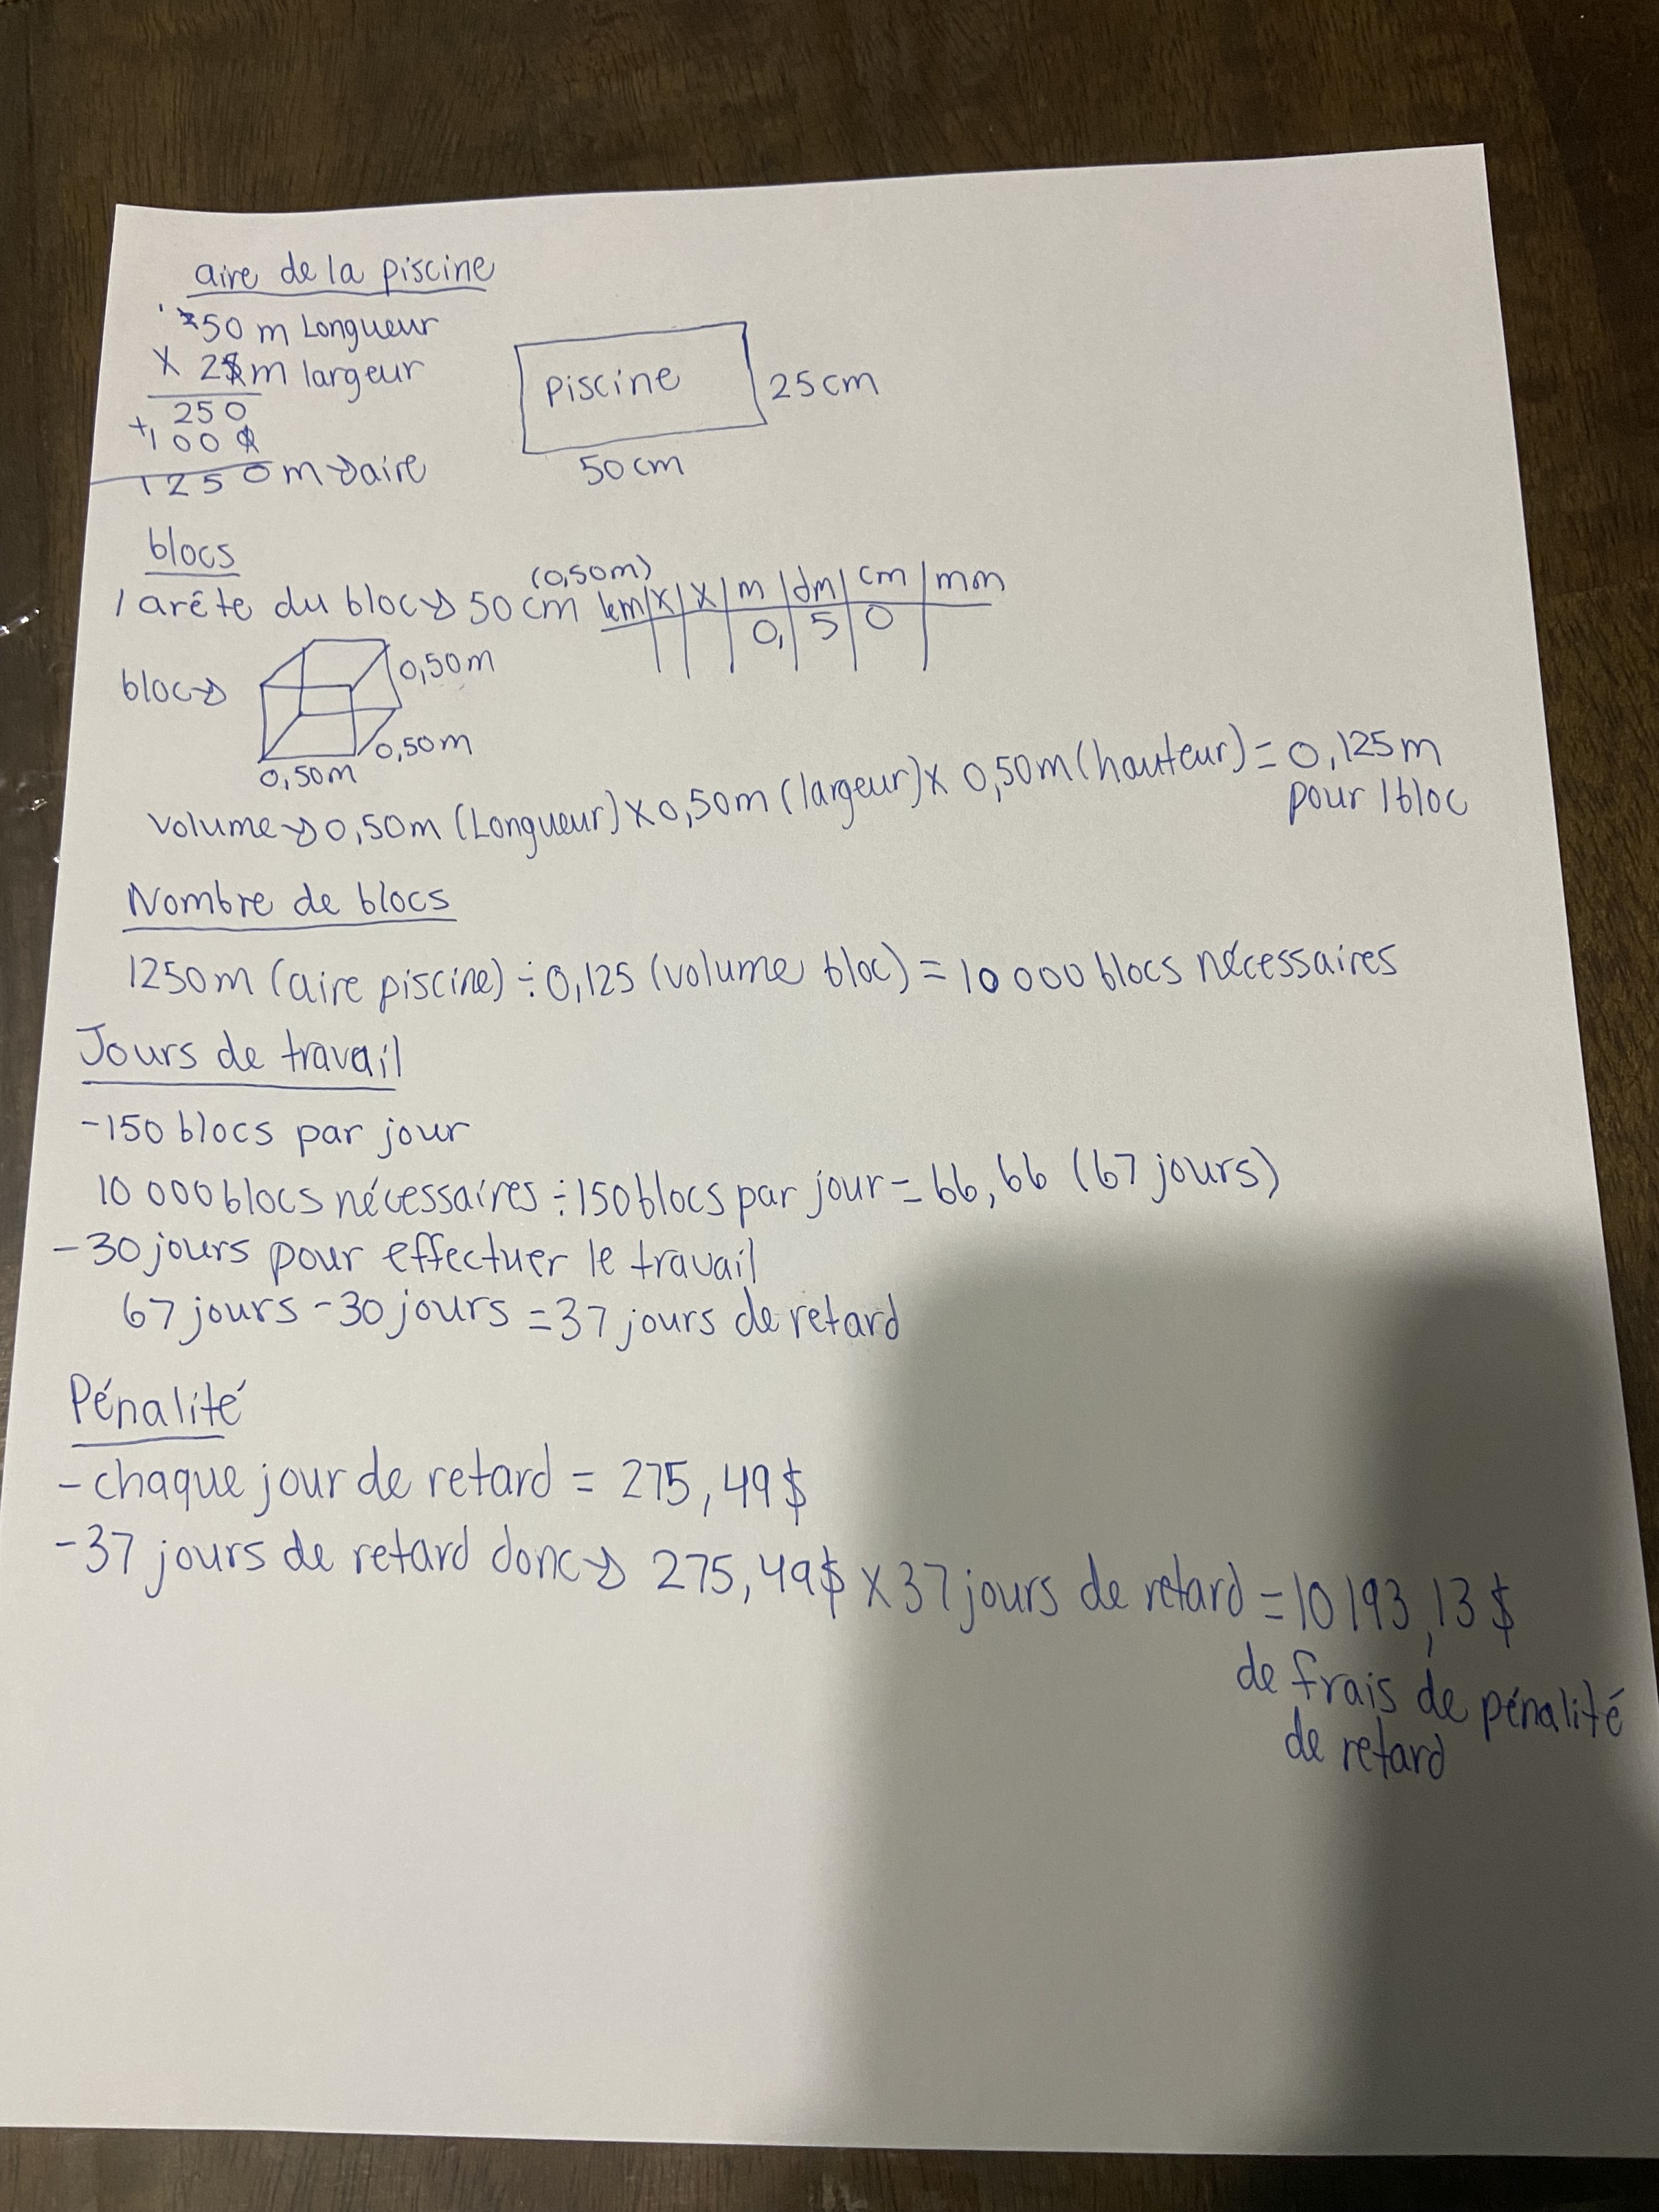 aire de la piscine
50 m Longueur
x 25 m largeur
250
+ 1000
1250 m → aire
piscine
25 cm
50 cm
blocs
1 arête du bloc → 50 cm (0,50m)
km | x | x | m | dm | cm | mm
0, | 5 | 0
bloc →
0,50m
0,50m
0,50m
volume → 0,50m (Longueur) x 0,50m (largeur) x 0,50m (hauteur) = 0,125m
pour 1 bloc
Nombre de blocs
1250m (aire piscine) ÷ 0,125 (volume bloc) = 10 000 blocs nécessaires
Jours de travail
- 150 blocs par jour
10 000 blocs nécessaires ÷ 150 blocs par jour = 66,66 (67 jours)
- 30 jours pour effectuer le travail
67 jours - 30 jours = 37 jours de retard
Pénalité
- chaque jour de retard = 275,49$
- 37 jours de retard donc → 275,49$ x 37 jours de retard = 10 193,13 $
de frais de pénalité
de retard